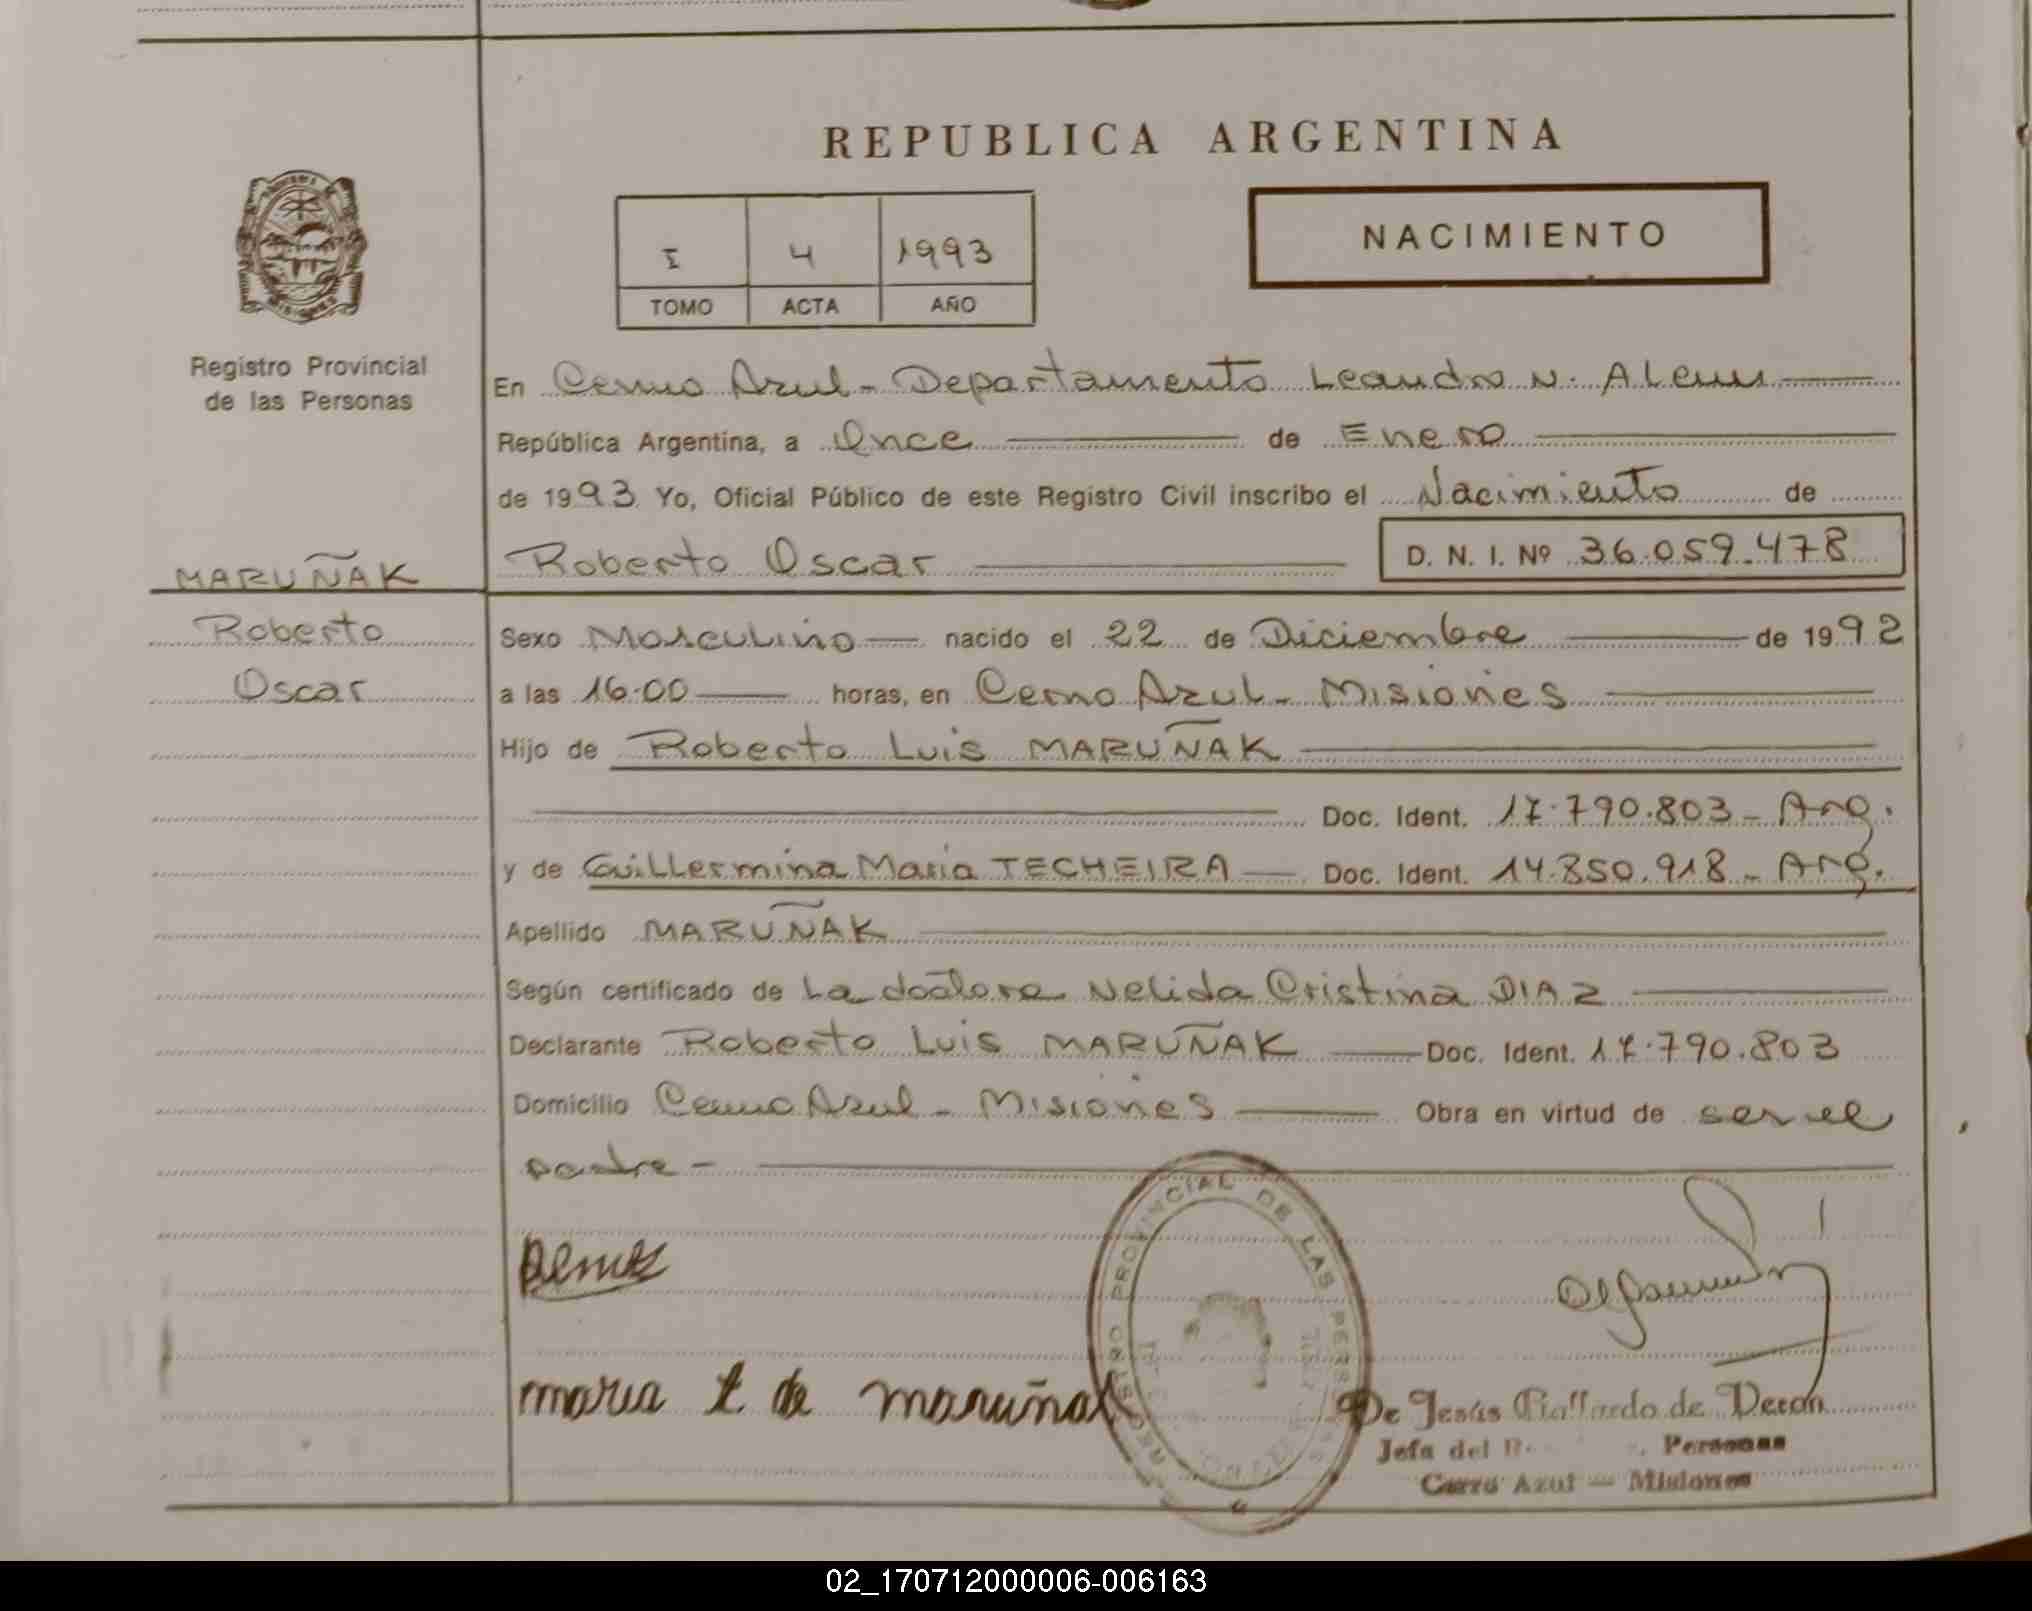 REPUBLICA ARGENTINA
NACIMIENTO
I 4 1993
TOMO ACTA AÑO
Registro Provincial
de las Personas
En Cerro Azul - Departamento Leandro N. Alem
República Argentina, a Once de Enero
de 1993 Yo, Oficial Público de este Registro Civil inscribo el Nacimiento de
MARUÑAK
Roberto Oscar D. N. I. Nº 36.059.478
Roberto
Oscar
Sexo Masculino nacido el 22 de Diciembre de 1992
a las 16.00 horas, en Cerro Azul - Misiones
Hijo de Roberto Luis MARUÑAK
Doc. Ident. 17.790.803 - Arg.
y de Guillermina Maria TECHEIRA Doc. Ident. 14.850.918 - Arg.
Apellido MARUÑAK
Según certificado de La doctora Nelida Cristina DIAZ
Declarante Roberto Luis MARUÑAK Doc. Ident. 17.790.803
Domicilio Cerro Azul - Misiones Obra en virtud de ser el
padre -
maria t. de maruñak
REGISTRO PROVINCIAL DE LAS PERSONAS
De Jesús Gallardo de Deron
Jefa del Personas
Cerro Azul — Misiones
02_170712000006-006163